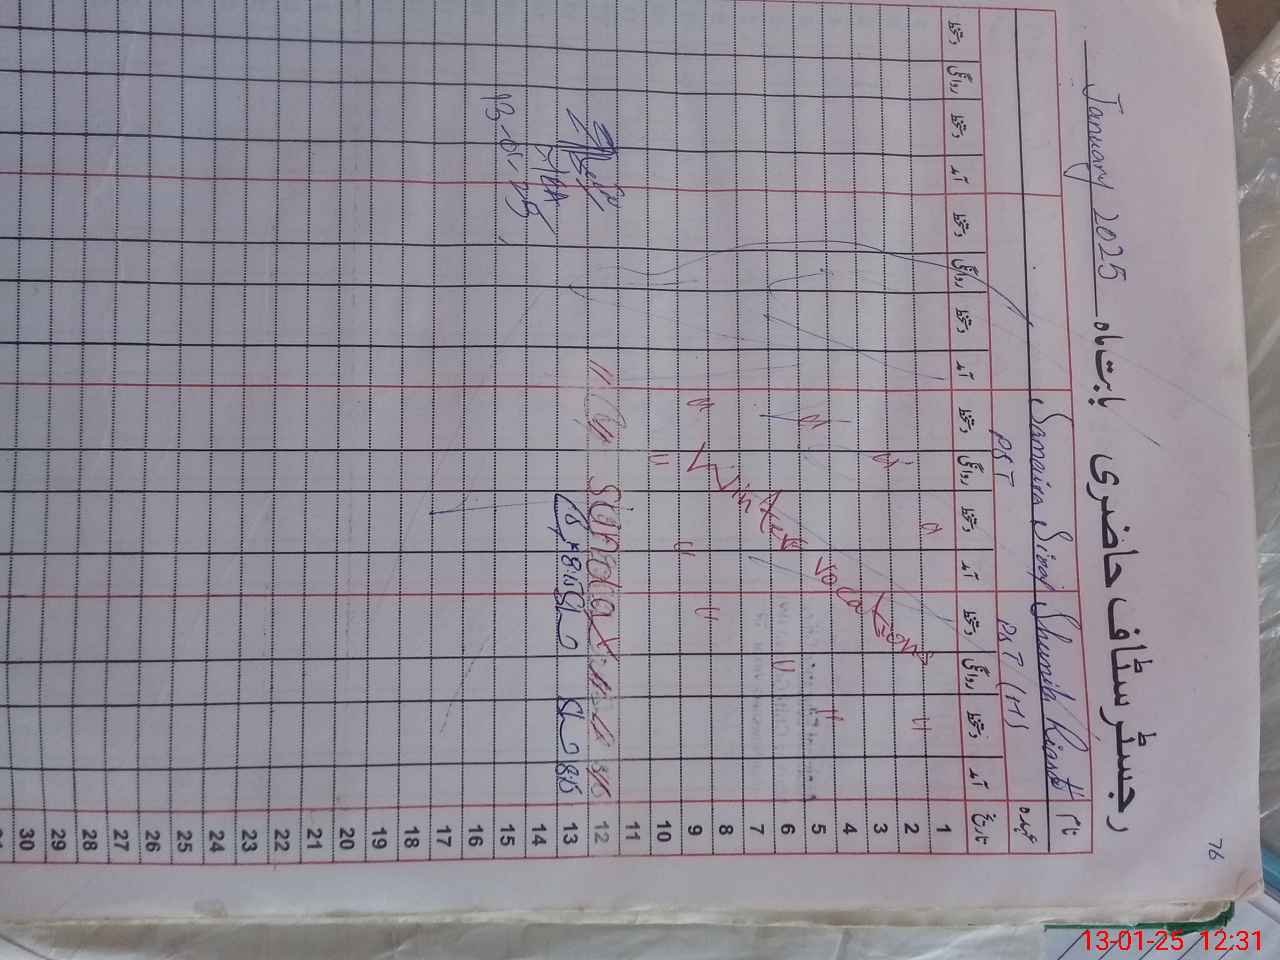 76
رجسٹر سٹاف حاضری بابت ماہ January 2025
نام Shumila Riasat Samaira Siraj
عہدہ PST (H) PST
تاریخ آمد دستخط روانگی دستخط آمد دستخط روانگی دستخط آمد دستخط روانگی دستخط آمد دستخط روانگی دستخط
1
2
3
4
5
6
7
8
9
10
11
12
13 8:15
14
15
16
17
18
19
20
21
22
23
24
25
26
27
28
29
30
Winter vacations
Sunday
13-01-25
13-01-25 12:31